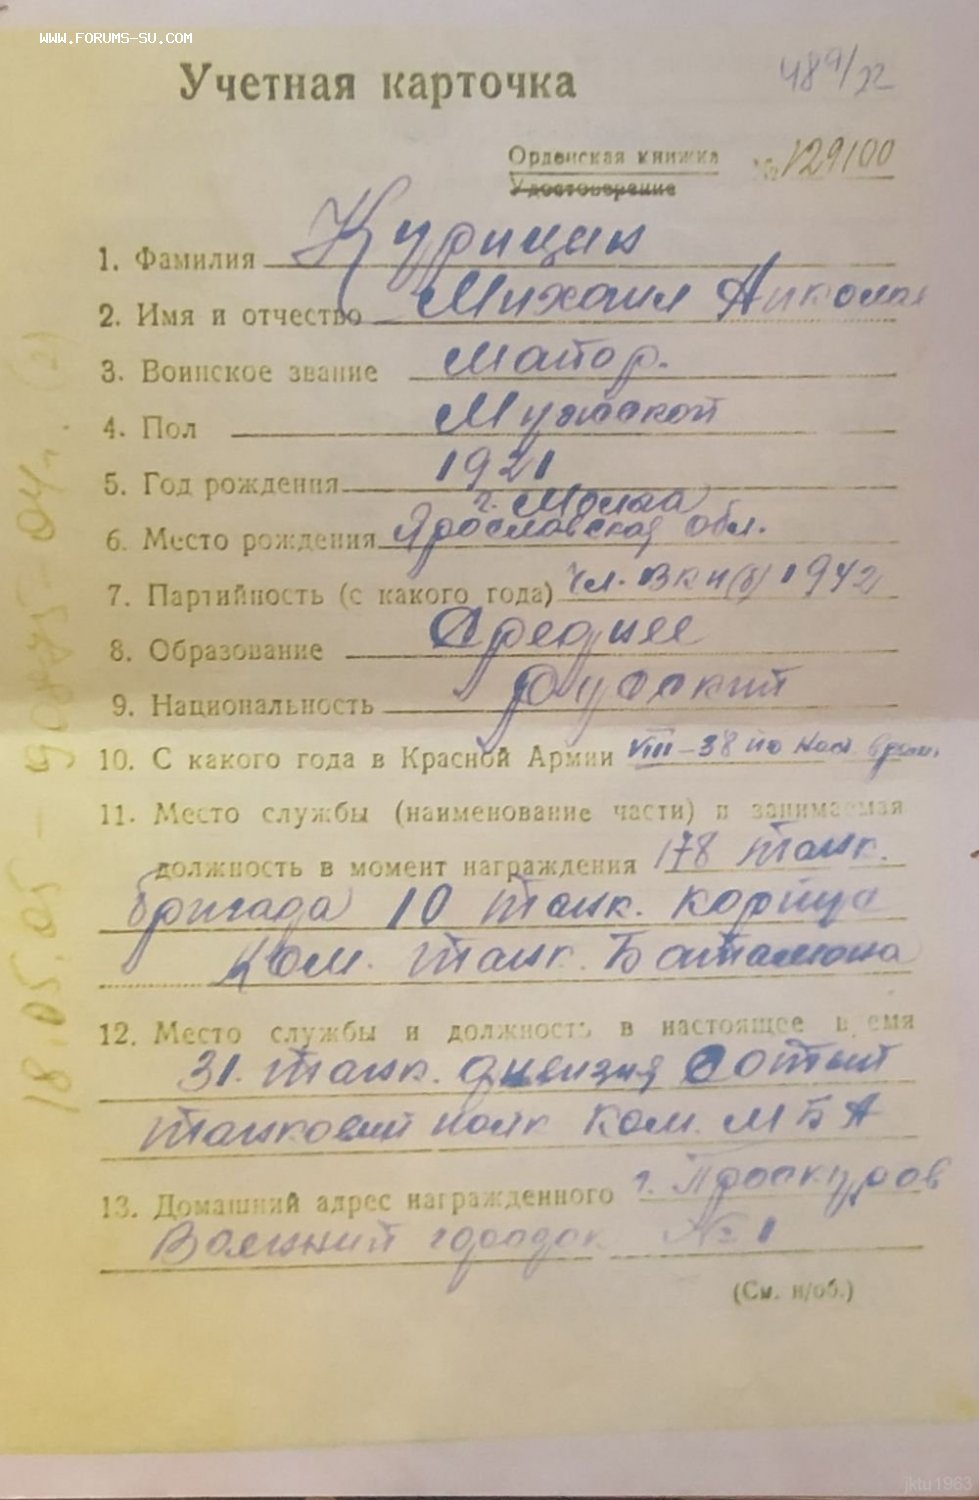 WWW.FORUMS-SU.COM
Учетная карточка
489/22
Орденская книжка № 129100
Удостоверение
1. Фамилия Курицин
2. Имя и отчество Михаил Николаев
3. Воинское звание Майор.
4. Пол Мужской
5. Год рождения 1921
г. Молога
6. Место рождения Ярославская обл.
7. Партийность (с какого года) Чл. ВКП(б) 1942
8. Образование Среднее
9. Национальность Русский
10. С какого года в Красной Армии VIII-38 по наст. время
11. Место службы (наименование части) и занимаемая
должность в момент награждения 178 танк.
бригада 10 танк. корпуса
Ком. танк. Батальона
12. Место службы и должность в настоящее время
31. танк. дивизия Сотый
танковый полк Ком. МБА
13. Домашний адрес награжденного г. Проскуров
Военный городок № 1
(См. н/об.)
18.05.05
jktu1963